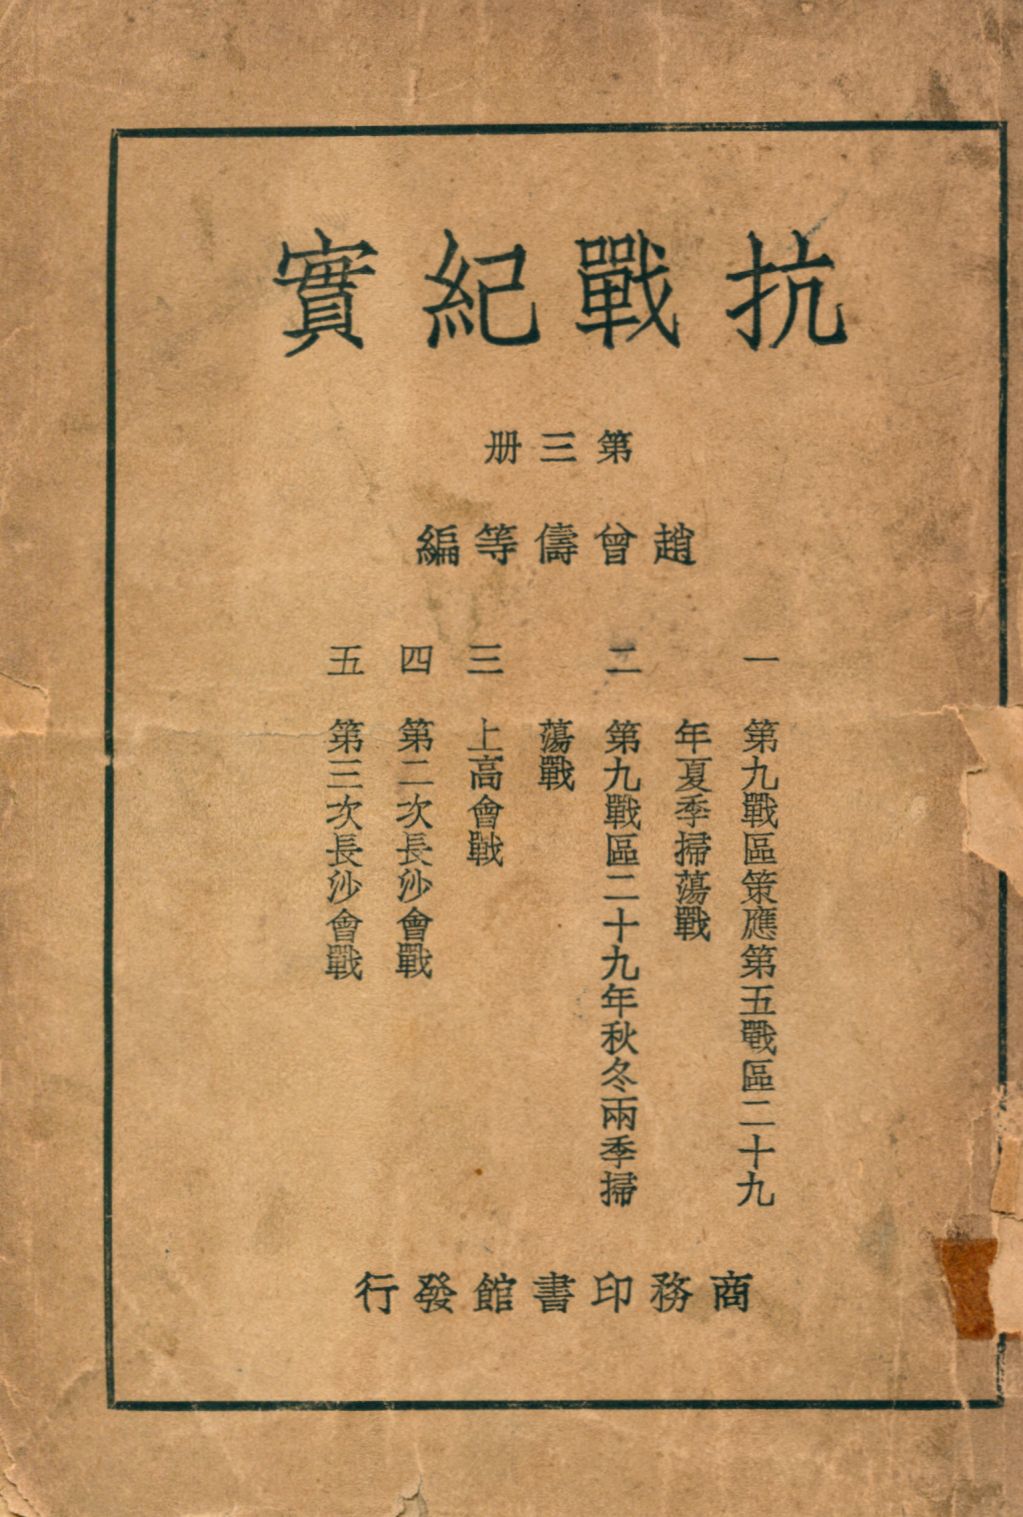 抗戰紀實
第三册
趙曾儔等編
一　第九戰區策應第五戰區二十九
年夏季掃蕩戰
二　第九戰區二十九年秋冬兩季掃
蕩戰
三　上高會戰
四　第二次長沙會戰
五　第三次長沙會戰
商務印書館發行